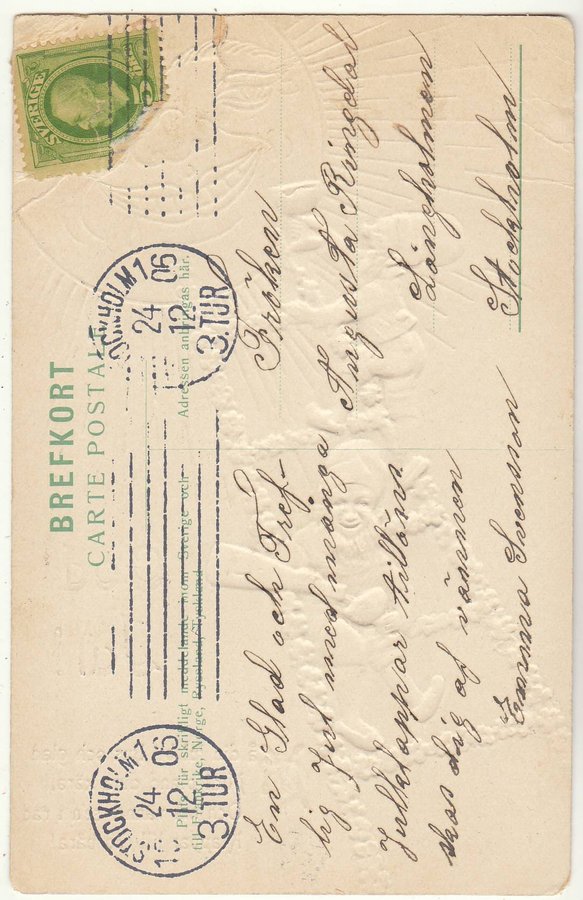 BREFKORT
CARTE POSTALE
Plats för skriftligt meddelande inom Sverige och
till Frankrike, Norge, Ryssland, Tyskland
Adressen anbringas här.
SVERIGE
5
STOCKHOLM 1
24 06
12
3.TUR
STOCKHOLM 1
24 06
12
3.TUR
En Glad och Tref-
lig Jul med många
Julklappar tillöns
skas dig af vännen
Emma Svensson
Fröken
Augusta Ringdal
Långholmen
Stockholm